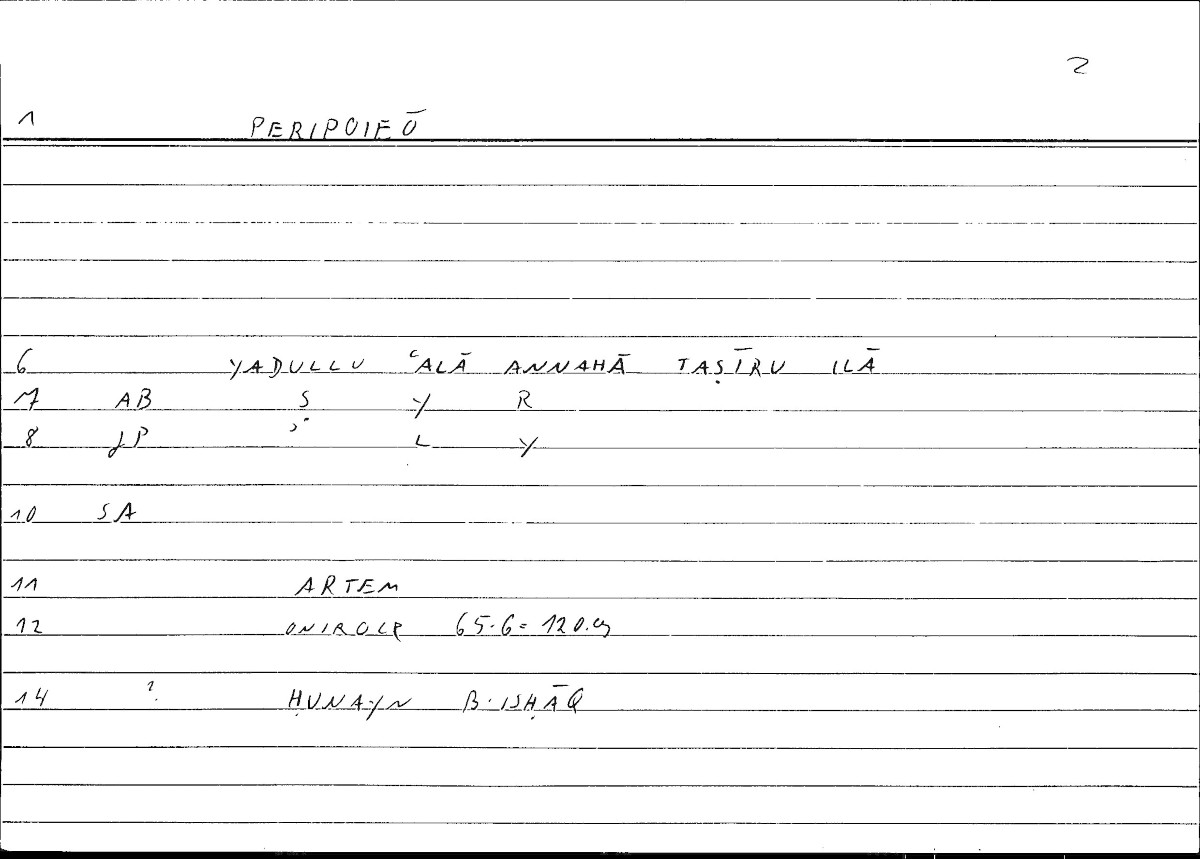 2
1 PERIPOIEŌ
6 YADULLU ʿALĀ ANNAHĀ TAṢĪRU ILĀ
7 AB S Y R
8 JP L Y
10 SA
11 ARTEM
12 ONIROCR 65.6=120.9
14 ? ḤUNAYN B. ISḤĀQ